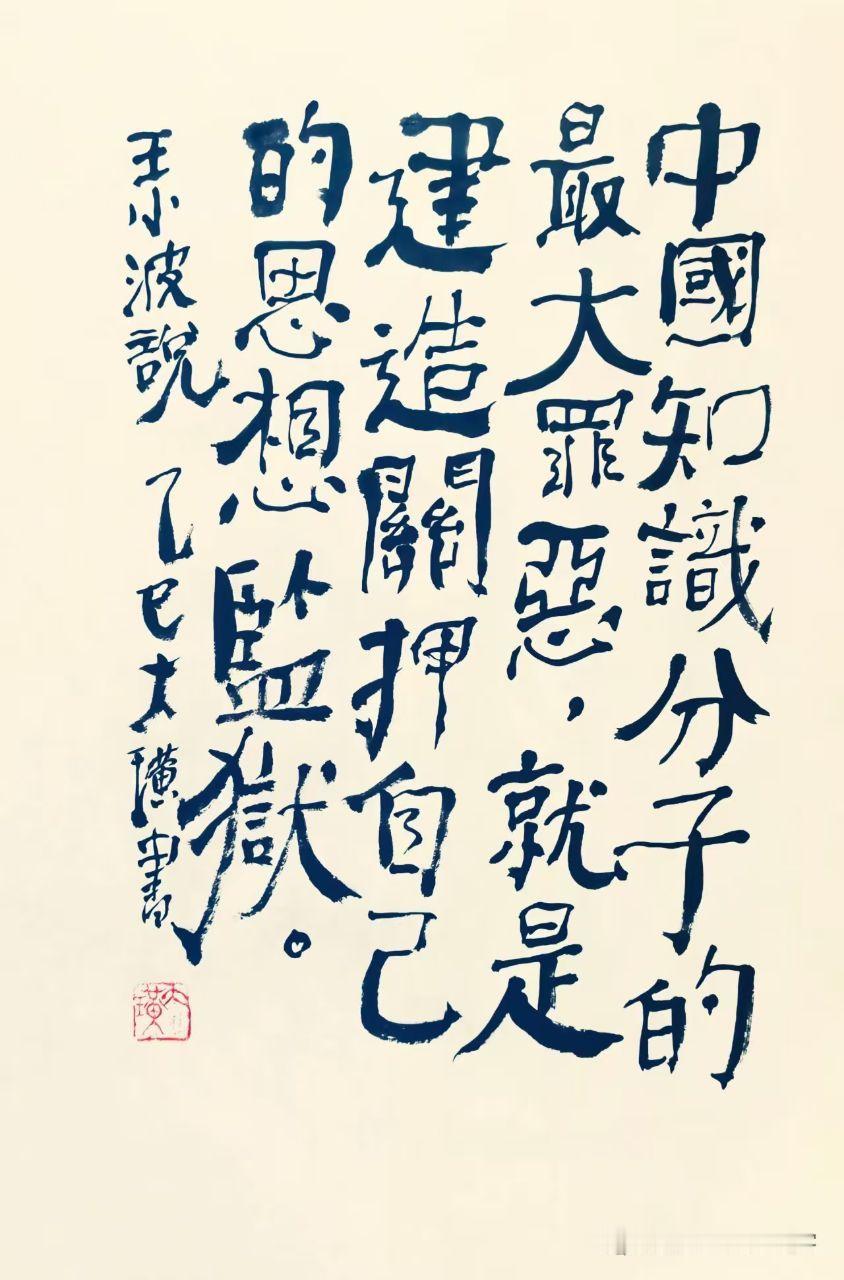 中國知識分子的
最大罪惡，就是
建造關押自己
的思想監獄。
王小波說 乙巳大璜書
大璜